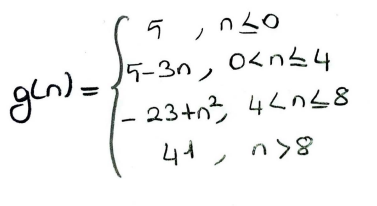 g(n) =
5 , n≤0
5-3n , 0<n≤4
-23+n², 4<n≤8
41 , n>8